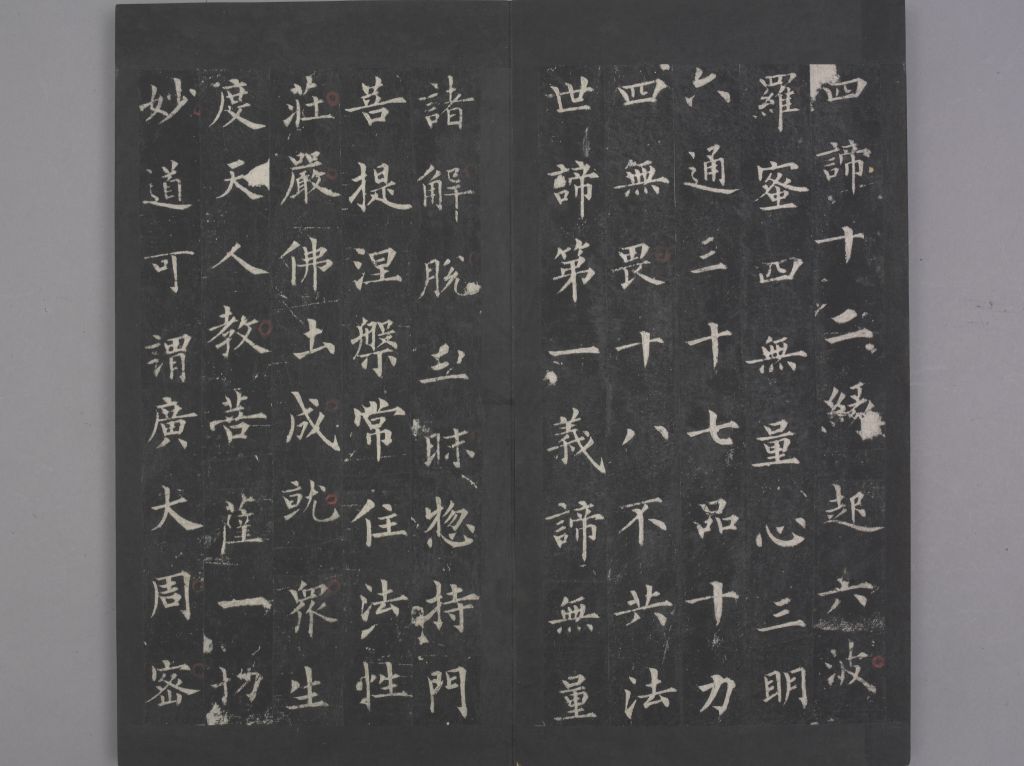 四諦十二緣起六波
羅蜜四無量心三明
六通三十七品十力
四無畏十八不共法
世諦第一義諦無量
諸解脫三昧惣持門
菩提涅槃常住法性
莊嚴佛土成就眾生
度天人教菩薩一切
妙道可謂廣大周密